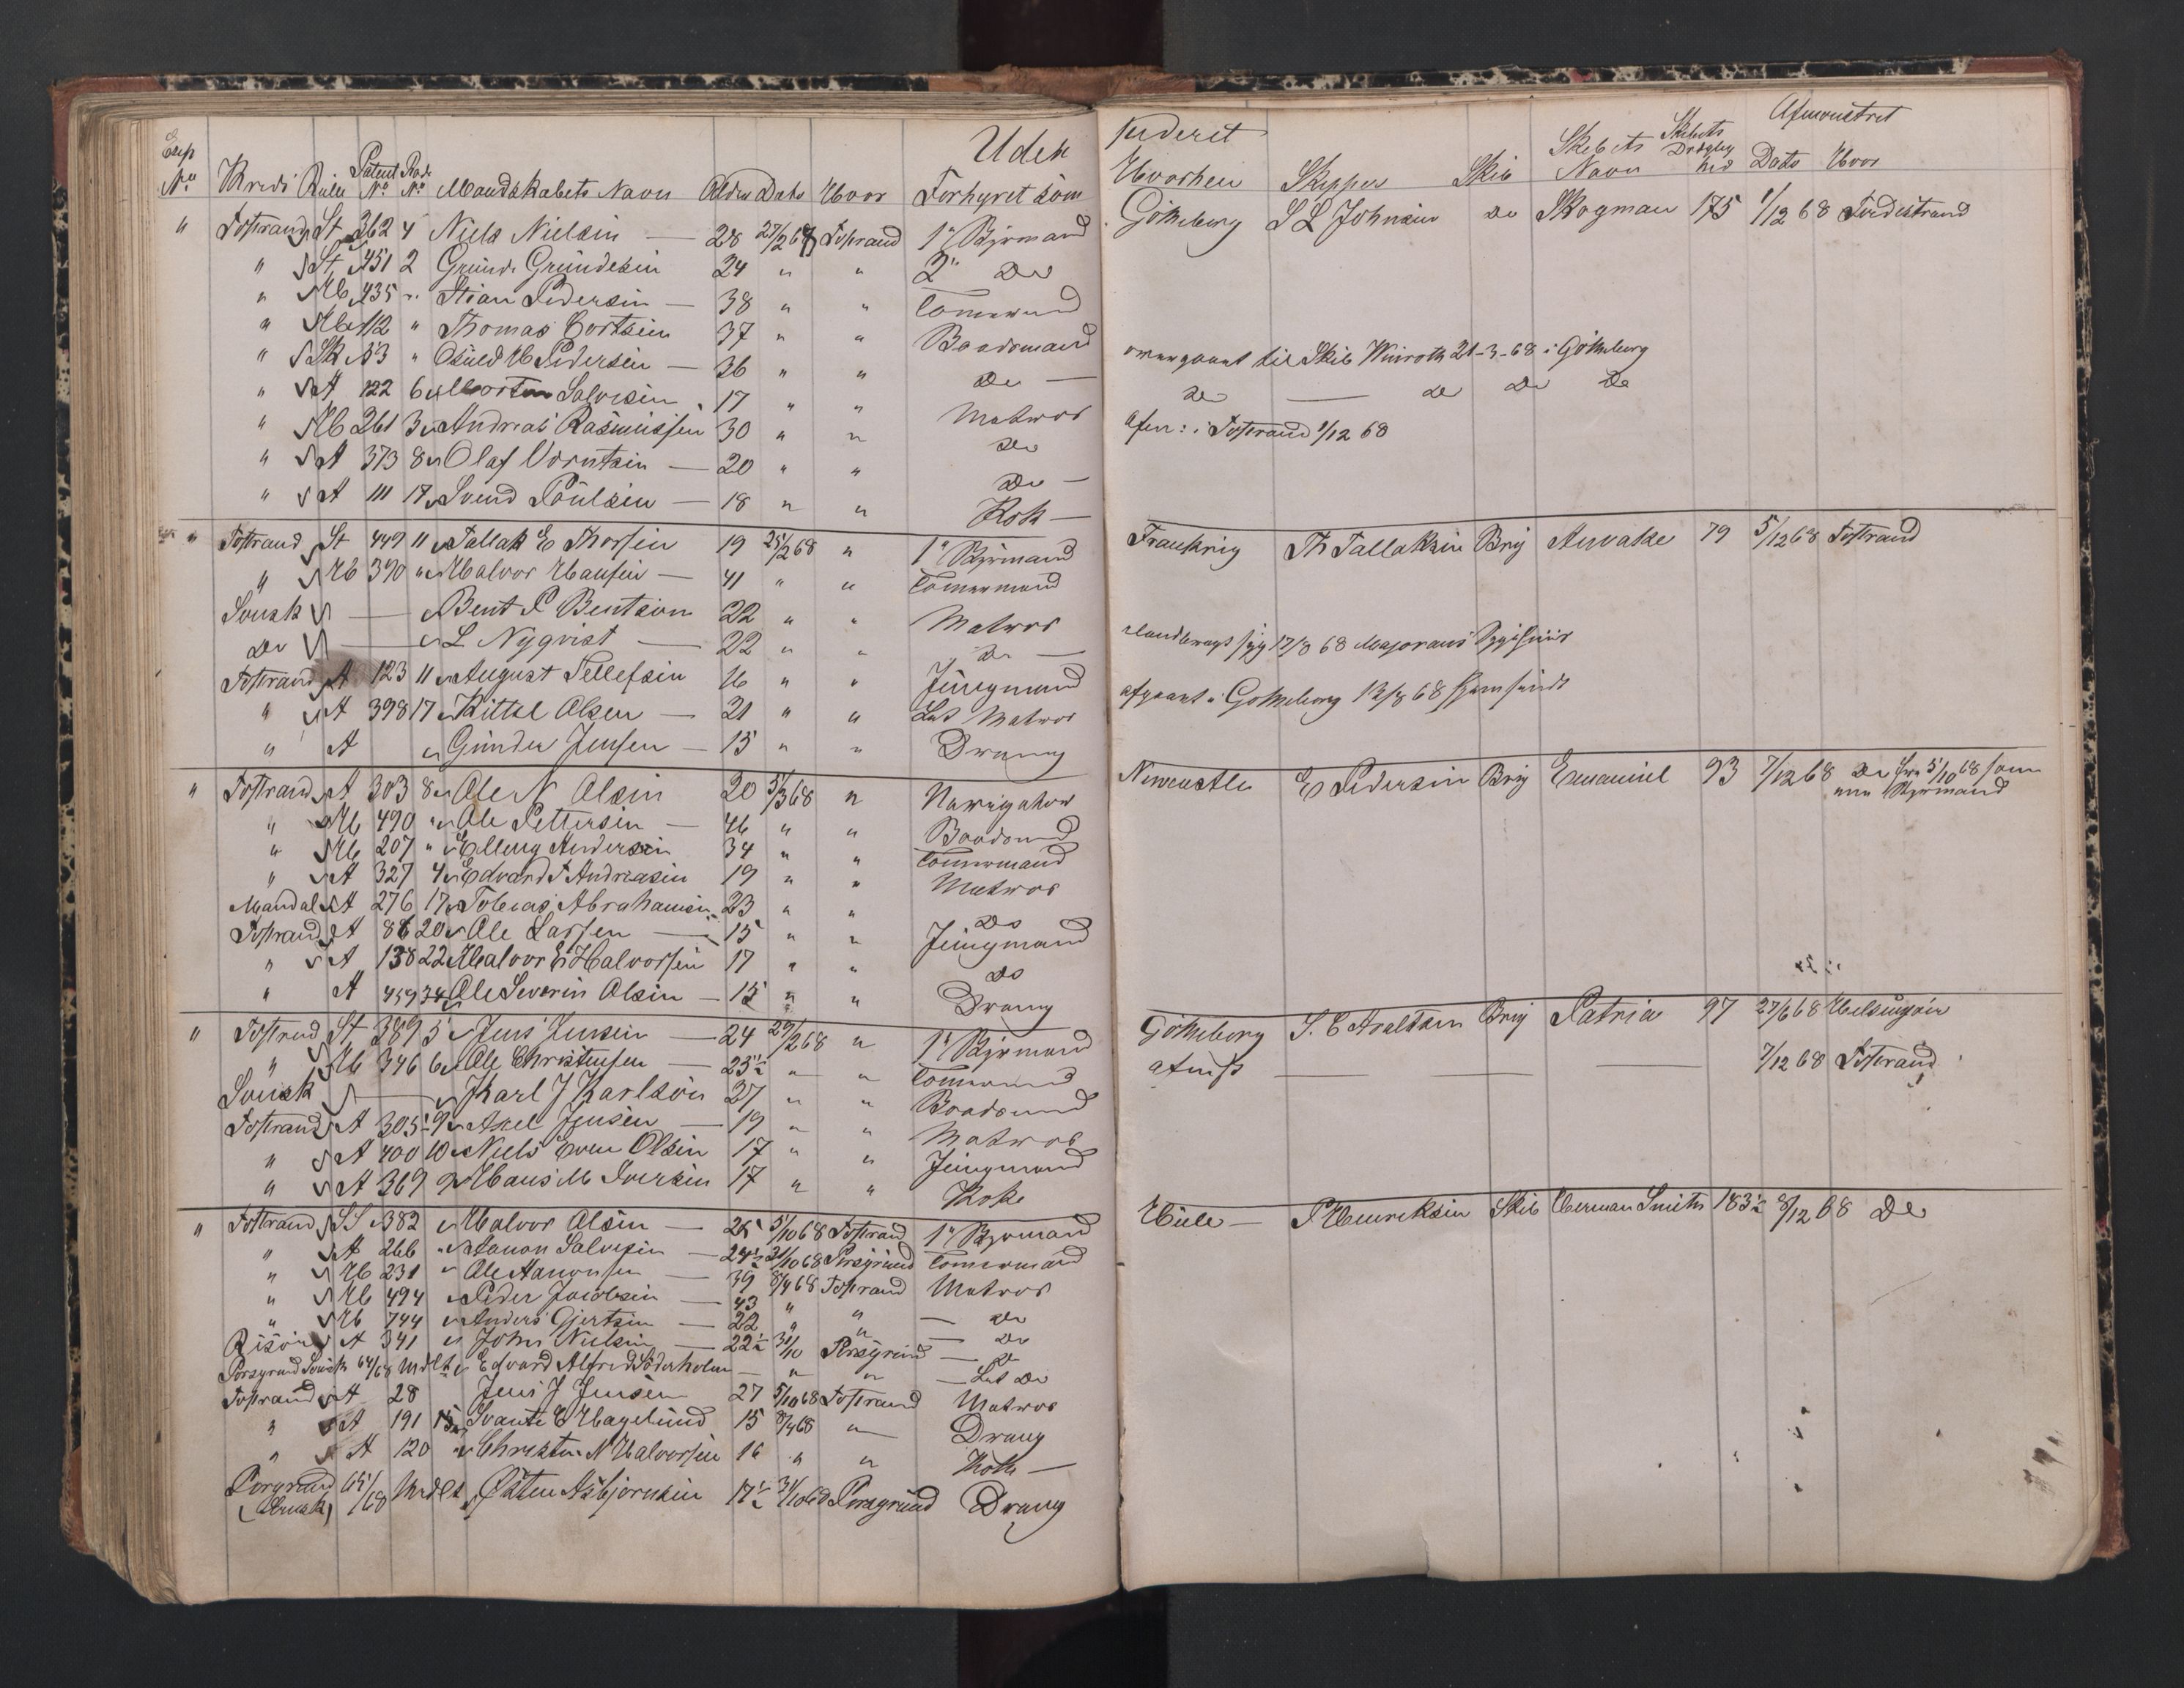 Uden
Exp No Kreds Rulle Patent No Rode No Mandskabets Navn Alder Dato Hvor Forhyret som
" Tostrand St 362 4 Niels Nielsen — 28 27/2 68 Tostrand 1st Styrmand
" St 451 2 Grunde Grundesen 24 " " 2n Do
" Hb 435 " Stian Pedersen — 38 " " Tømermand
" Hb 112 " Thomas Cortsen 37 " " Baadsmand
" Sk 53 " Osuld H Pedersen — 36 " " Do —
" A 122 6 Morten Salvesen 17 " " Matros
" Hb 261 3 Andreas Rasmussen 30 " " Do
" A 373 8 Olaf Berntsen — 20 " " Do —
" A 111 17 Svend Poulsen — 18 " " Kok —
" Tostrand St 449 11 Tallak E Thorsen 19 25/2 68 " 1st Styrmand
" Hb 390 " Halvor Hansen — 41 " " Tømermand
Svensk — Bent P Bentson 22 " " Matros
Do — L Nyqvist — 22 " " Do —
Tostrand A 123 11 August Tellefsen 16 " " Jungmand
" A 398 17 Kittel Olsen — 21 " " Let Matros
" A Gunder Jensen — 15 " " Dreng
" Tostrand A 303 8 Ole N Olsen 20 5/3 68 " Navigatør
" Hb 490 " Ole Pettersen — 46 " " Baadsmd
" Hb 207 " Elling Andersen 34 " " Tømermand
" A 327 4 Edvard T Andreasen 19 " " Matros
Mandal A 276 17 Tobias Abrahamsen 23 " " Do
Tostrand A 86 20 Ole Larsen — 15 " " Jungmand
" A 138 22 Halvor E Halvorsen 17 " " Do
" A 459 34 Ole Severin Olsen — 15 " " Dreng
" Tostrand St 389 5 Jens Jensen — 24 29/2 68 " 1st Styrmand
" Hb 346 6 Ole Christensen — 23½ " " Tømermd
Svensk — Karl J Karlson 37 " " Baadsmd
Tostrand A 305 9 Axel Jensen — 19 " " Matros
" A 400 10 Niels Even Olsen 17 " " Jungmand
" A 369 9 Hans M Iversen 17 " " Kok
" Tostrand SS 382 Halvor Olsen — 25 5/10 68 Tostrand 1st Styrmand
" A 266 " Aanon Salvesen — 24½ 31/10 68 Porsgrund Tømermand
" Hb 231 " Ole Aanonsen — 39 8/4 68 Tostrand Matros
" Hb 494 Peder Jacobsen — 43 " " — Do
" Hb 744 Anders Gjertsen — 22 " " — Do
Risøer A 341 John Nielsen — 22½ 31/10 Porsgrund — Do
Porsgrund Svensk 64/68 Mdlt Edvard Alfred Söderholm — " " — Let Do
Tostrand A 28 Jens J Jensen 27 5/10 68 Tostrand Matros
" A 191 15 Svante E Hagelund 15 8/4 68 — Dreng
" A 120 " Christen N Halvorsen 16 " " Kok —
Porsgrund (Svensk) 65/68 Mdlt Østen Asbjørnsen 17½ 31/10 68 Porsgrund Dreng
rederet
Afmønstret
Hvorhen Skipper Skib Skibets Navn Skibets Drægtighed Dato Hvor
Gøtheborg S L Johnsen Do Skogman 175 1/12 68 Tvedestrand
overgaaet til Skib Winroth 21-3-68 i Gøtheborg
Do — Do Do Do
Afm: i Tostrand 1/12 68
Frankrig Th Tallaksen Brig Anvake 79 5/12 68 Tostrand
ilandbragt syg 17/8 68
afgaaet i Gotheborg 13/8 68
Newcastle E Pedersen Brig Emanuel 93 7/12 68 Do fra 5/10 68 som
Styrmand
Gøtheborg S. C Axeltsen Brig Patria 97 27/6 68 Helsingøer
afmst — — — 7/12 68 Tostrand
Hull — P Henriksen Skib Herman Smith 183½ 8/12 68 Do